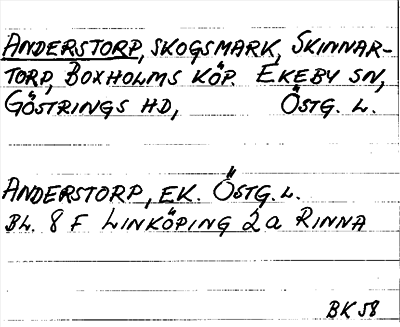 ANDERSTORP, SKOGSMARK, SKINNAR-
TORP, BOXHOLMS KÖP. EKEBY SN,
GÖSTRINGS HD, ÖSTG. L.
ANDERSTORP, EK. ÖSTG. L.
BL. 8 F LINKÖPING 2a RINNA
BK 58